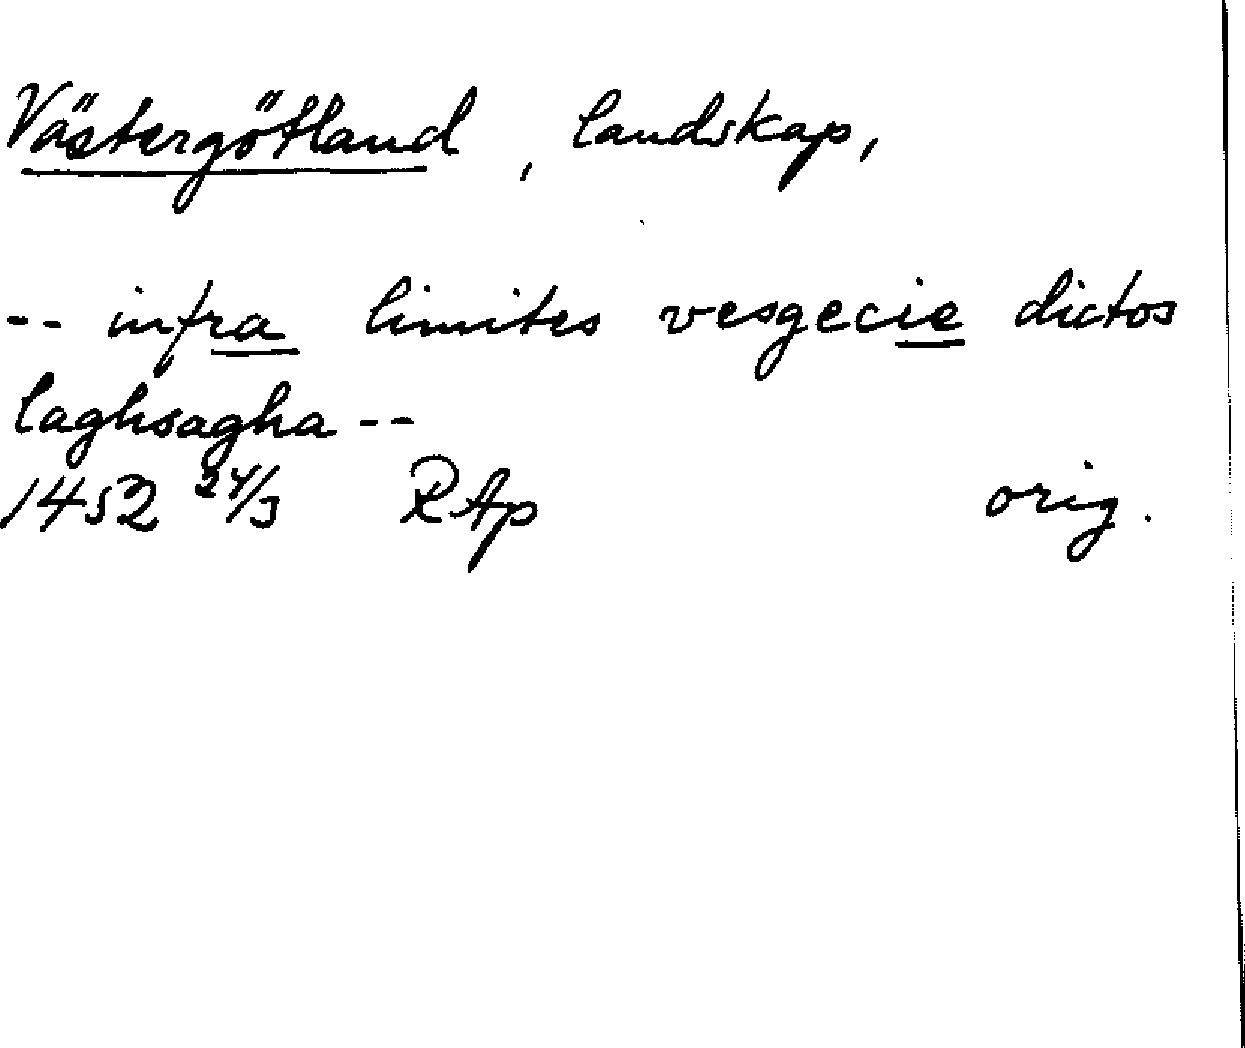 Västergötland, landskap,
-- infra limites vesgecie dictos
laghsagha --
1452 24/3 RAp orig.